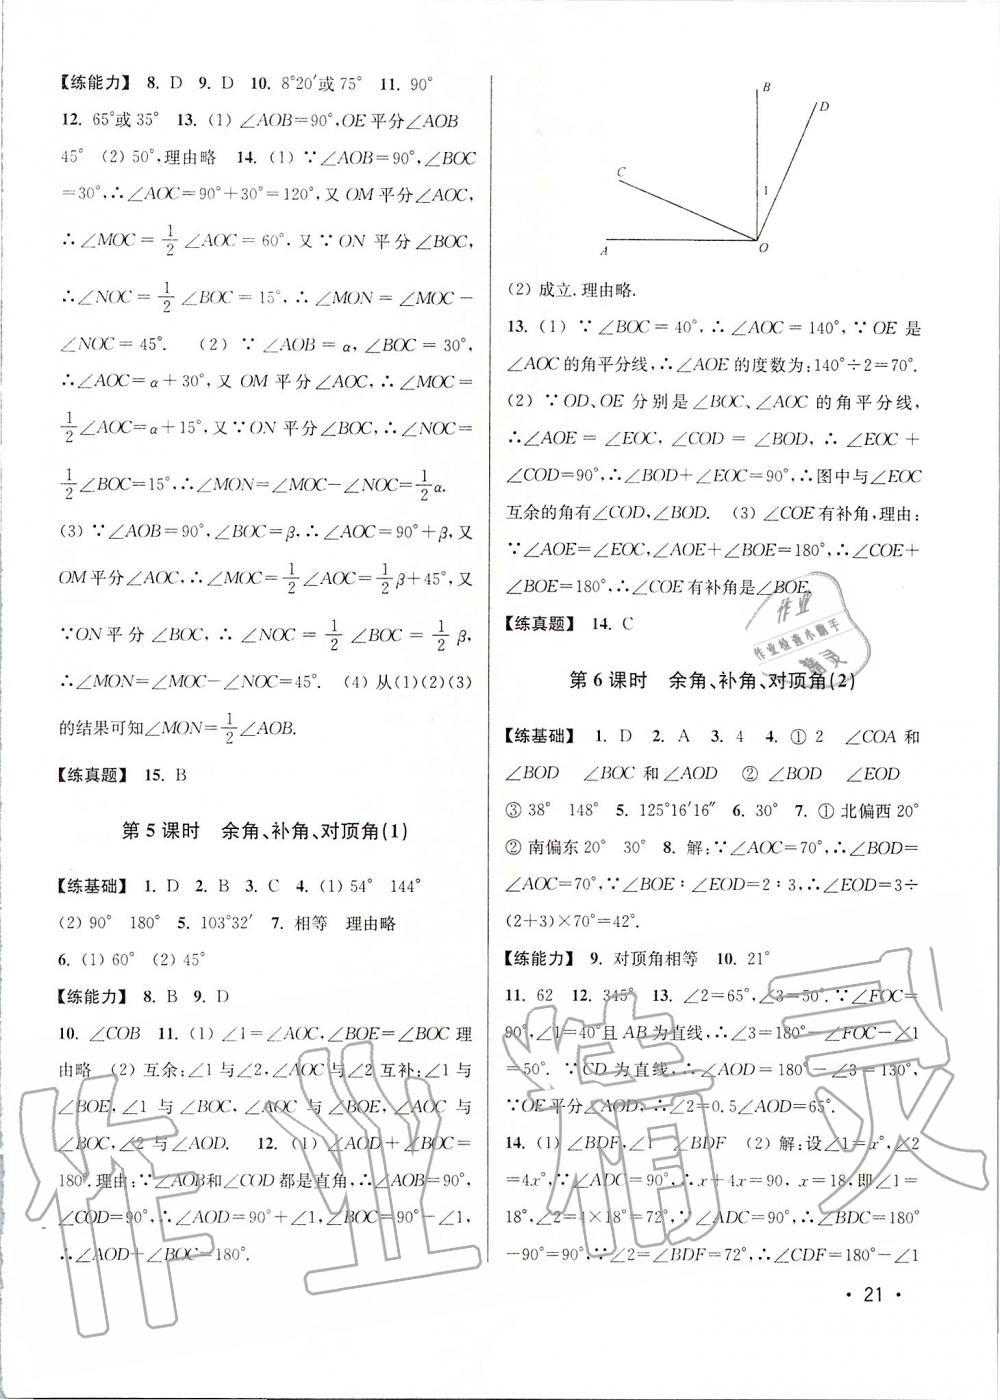 【练能力】 8. D 9. D 10. 8°20′或75° 11. 90°
12. 65°或35° 13. (1) ∠AOB=90°,OE平分∠AOB
45° (2) 50°,理由略 14. (1) ∵∠AOB=90°,∠BOC
=30°,∴∠AOC=90°+30°=120°,又OM平分∠AOC,
∴∠MOC=1/2∠AOC=60°,又∵ON平分∠BOC,
∴∠NOC=1/2∠BOC=15°,∴∠MON=∠MOC-
∠NOC=45°. (2) ∵∠AOB=α,∠BOC=30°,
∴∠AOC=α+30°,又OM平分∠AOC,∴∠MOC=
1/2∠AOC=α+15°,又∵ON平分∠BOC,∴∠NOC=
1/2∠BOC=15°,∴∠MON=∠MOC-∠NOC=1/2α.
(3) ∵∠AOB=90°,∠BOC=β,∴∠AOC=90°+β,又
OM平分∠AOC,∴∠MOC=1/2∠AOC=1/2β+45°,又
∵ON平分∠BOC,∴∠NOC=1/2∠BOC=1/2β,
∴∠MON=∠MOC-∠NOC=45°. (4) 从(1)(2)(3)
的结果可知∠MON=1/2∠AOB.
【练真题】 15. B
第5课时 余角、补角、对顶角(1)
【练基础】 1. D 2. B 3. C 4. (1) 54° 144°
(2) 90° 180° 5. 103°32′ 7. 相等 理由略
6. (1) 60° (2) 45°
【练能力】 8. B 9. D
10. ∠COB 11. (1) ∠1=∠AOC,∠BOE=∠BOC理
由略 (2) 互余:∠1与∠2,∠AOC与∠2互补:∠1与
∠BOE,∠1与∠BOC,∠AOC与∠BOE,∠AOC与
∠BOC,∠2与∠AOD. 12. (1) ∠AOD+∠BOC=
180°.理由:∵∠AOB和∠COD都是直角,∴∠AOB=
∠COD=90°,∴∠AOD=90°+∠1,∠BOC=90°-∠1,
∴∠AOD+∠BOC=180°.
B
D
C
1
A
O
(2) 成立.理由略.
13. (1) ∵∠BOC=40°,∴∠AOC=140°,∵OE是
∠AOC的角平分线,∴∠AOE的度数为:140°÷2=70°.
(2) ∵OD、OE分别是∠BOC、∠AOC的角平分线,
∴∠AOE=∠EOC,∠COD=∠BOD,∴∠EOC+
∠COD=90°,∴∠BOD+∠EOC=90°,∴图中与∠EOC
互余的角有∠COD,∠BOD. (3) ∠COE有补角,理由:
∵∠AOE=∠EOC,∠AOE+∠BOE=180°,∴∠COE+
∠BOE=180°,∴∠COE有补角是∠BOE.
【练真题】 14. C
作业
作业检查小助手
精灵
第6课时 余角、补角、对顶角(2)
【练基础】 1. D 2. A 3. 4 4. ① 2 ∠COA和
∠BOD ∠BOC和∠AOD ② ∠BOD ∠EOD
③ 38° 148° 5. 125°16′16″ 6. 30° 7. ① 北偏西20°
② 南偏东20° 30° 8. 解:∵∠AOC=70°,∴∠BOD=
∠AOC=70°,∵∠BOE∶∠EOD=2∶3,∴∠EOD=3÷
(2+3)×70°=42°.
【练能力】 9. 对顶角相等 10. 21°
11. 62 12. 345° 13. ∠2=65°,∠3=50°.∵∠FOC=
90°,∠1=40°且AB为直线,∴∠3=180°-∠FOC-∠1
=50°. ∵CD为直线,∴∠AOD=180°-∠3=130°,
∵OE平分∠AOD,∴∠2=0.5∠AOD=65°.
14. (1) ∠BDF,∠1 ∠BDF (2) 解:设∠1=x°,∠2
=4x°,∵∠ADC=90°,∴x+4x=90,x=18,即∠1=
18°,∠2=4×18°=72°,∵∠ADC=90°,∴∠BDC=180°
-90°=90°,∵∠2=∠BDF=72°,∴∠CDF=180°-∠1
作业精灵
· 21 ·